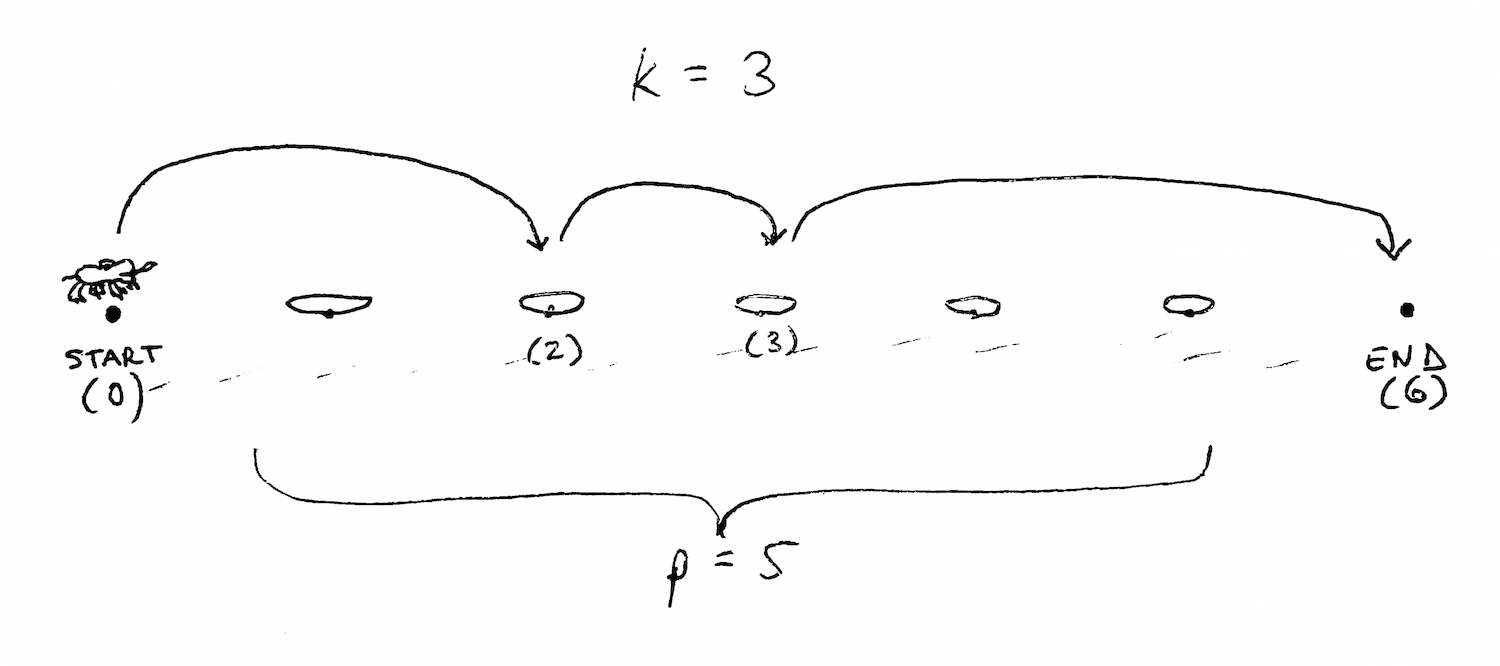 k = 3
START
(0)
(2)
(3)
END
(6)
p = 5